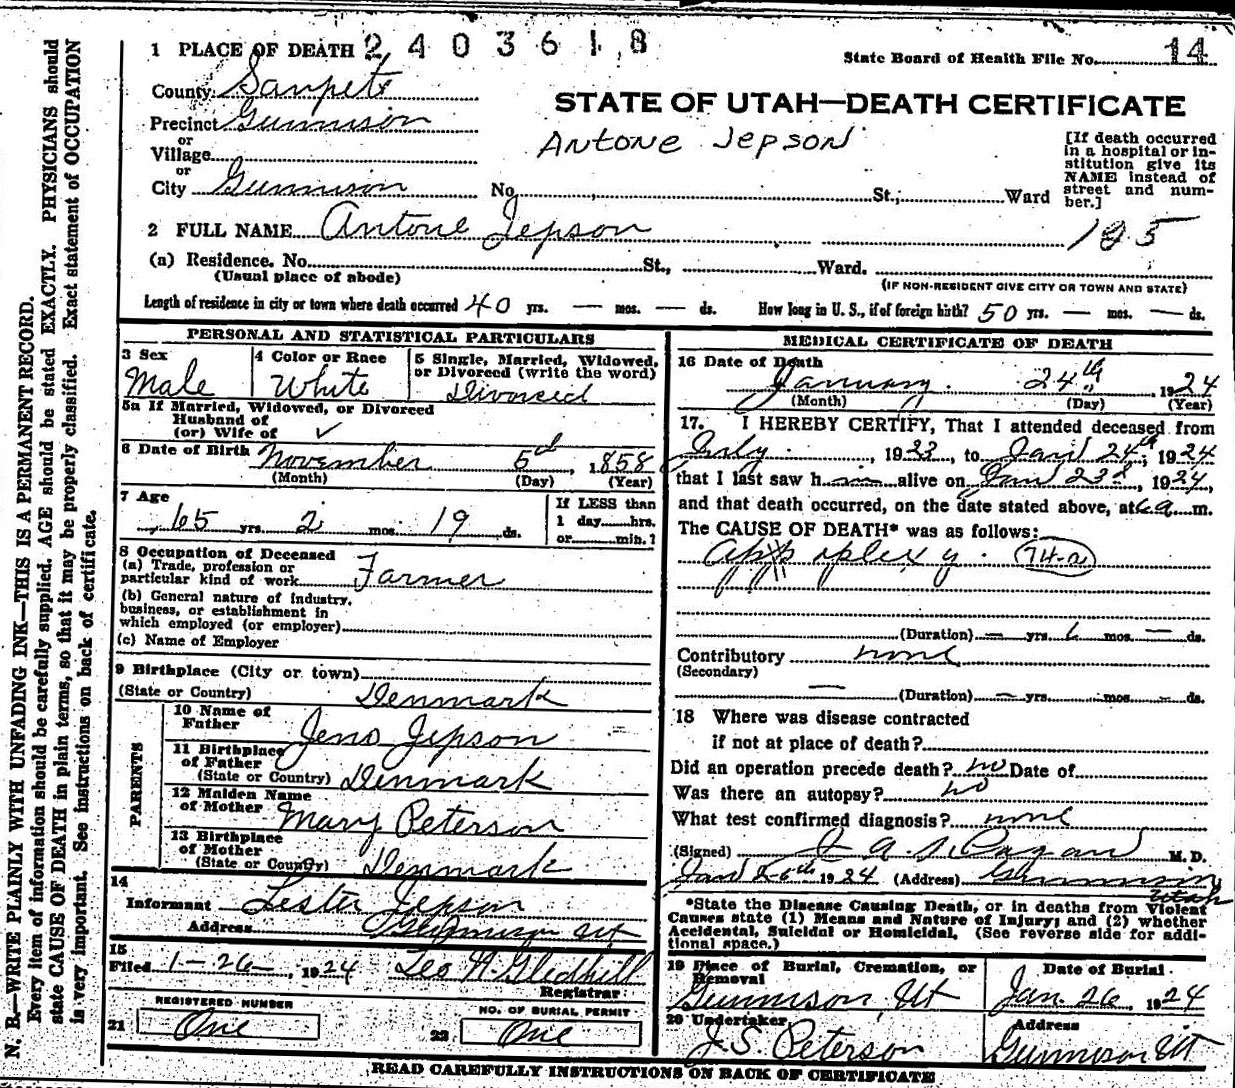 N. B.—WRITE PLAINLY WITH UNFADING INK—THIS IS A PERMANENT RECORD.
Every item of information should be carefully supplied. AGE should be stated EXACTLY. PHYSICIANS should
state CAUSE OF DEATH in plain terms, so that it may be properly classified. Exact statement of OCCUPATION
is very important. See instructions on back of certificate.
1 PLACE OF DEATH 2403618
State Board of Health File No. 14
County Sanpete
STATE OF UTAH—DEATH CERTIFICATE
Precinct Gunnison
Antone Jepson
or
Village
or
City Gunnison No. St.; Ward
[If death occurred
in a hospital or in-
stitution give its
NAME instead of
street and num-
ber.]
2 FULL NAME Antone Jepson 195
(a) Residence. No. St., Ward.
(Usual place of abode) (IF NON-RESIDENT GIVE CITY OR TOWN AND STATE)
Length of residence in city or town where death occurred 40 yrs. — mos. — ds. How long in U. S., if of foreign birth? 50 yrs. — mos. — ds.
PERSONAL AND STATISTICAL PARTICULARS
3 Sex
Male
4 Color or Race
White
5 Single, Married, Widowed,
or Divorced (write the word)
Divorced
5a If Married, Widowed, or Divorced
Husband of
(or) Wife of ✓
6 Date of Birth November 5th, 1858
(Month) (Day) (Year)
7 Age
65 yrs. 2 mos. 19 ds.
If LESS than
1 day hrs.
or min.?
8 Occupation of Deceased
(a) Trade, profession or
particular kind of work Farmer
(b) General nature of industry,
business, or establishment in
which employed (or employer)
(c) Name of Employer
9 Birthplace (City or town)
(State or Country) Denmark
PARENTS
10 Name of
Father Jens Jepson
11 Birthplace
of Father
(State or Country) Denmark
12 Maiden Name
of Mother Mary Peterson
13 Birthplace
of Mother
(State or Country) Denmark
14
Informant Lester Jepson
Address Gunnison Ut
15
Filed 1-26-, 1924 Leo H. Gledhill
Registrar
REGISTERED NUMBER
21 One
NO. OF BURIAL PERMIT
22 One
MEDICAL CERTIFICATE OF DEATH
16 Date of Death
January 24th 1924
(Month) (Day) (Year)
17. I HEREBY CERTIFY, That I attended deceased from
July, 1923, to Jan 24th, 1924
that I last saw him alive on Jan 23d, 1924,
and that death occurred, on the date stated above, at 6 a. m.
The CAUSE OF DEATH* was as follows:
Apoplexy. 74-a
(Duration) — yrs. 6 mos. — ds.
Contributory none
(Secondary)
— (Duration) — yrs. mos. — ds.
18 Where was disease contracted
if not at place of death?
Did an operation precede death? no Date of
Was there an autopsy? no
What test confirmed diagnosis? none
(Signed) M. D.
Jan 26th 1924 (Address) Gunnison
Utah
*State the Disease Causing Death, or in deaths from Violent
Causes state (1) Means and Nature of Injury; and (2) whether
Accidental, Suicidal or Homicidal. (See reverse side for addi-
tional space.)
19 Place of Burial, Cremation, or
Removal
Gunnison, Ut
Date of Burial
Jan. 26, 1924
20 Undertaker
J. S. Peterson
Address
Gunnison Ut
READ CAREFULLY INSTRUCTIONS ON BACK OF CERTIFICATE